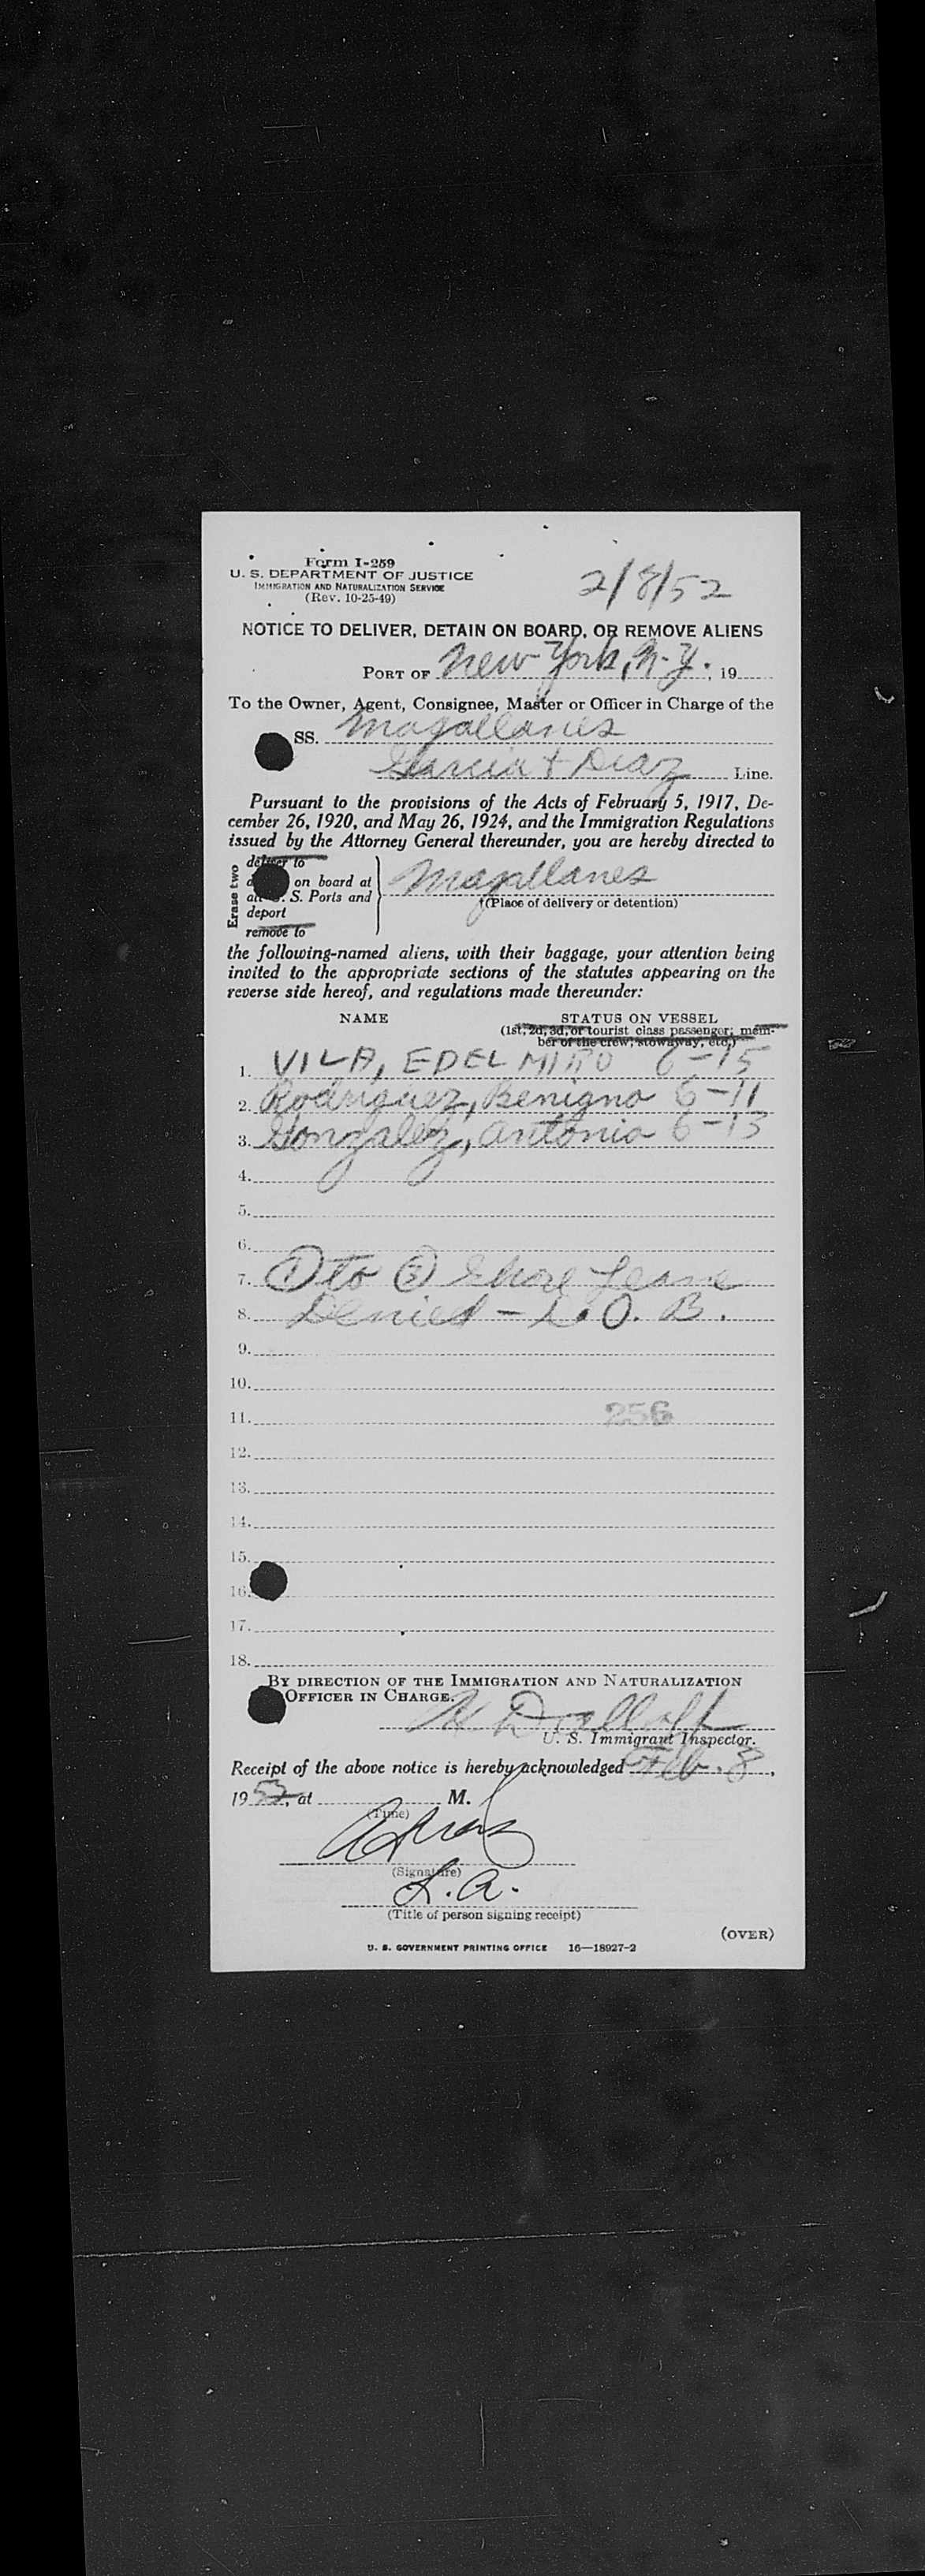 Form I-259
U. S. DEPARTMENT OF JUSTICE
IMMIGRATION AND NATURALIZATION SERVICE
(Rev. 10-25-49)
2/8/52
NOTICE TO DELIVER, DETAIN ON BOARD, OR REMOVE ALIENS
PORT OF New York, N.Y., 19
To the Owner, Agent, Consignee, Master or Officer in Charge of the
SS. Magallanes
Garcia + Diaz Line.
Pursuant to the provisions of the Acts of February 5, 1917, De-
cember 26, 1920, and May 26, 1924, and the Immigration Regulations
issued by the Attorney General thereunder, you are hereby directed to
Erase two
deliver to
on board at
S. Ports and
deport
remove to
Magallanes
†(Place of delivery or detention)
the following-named aliens, with their baggage, your attention being
invited to the appropriate sections of the statutes appearing on the
reverse side hereof, and regulations made thereunder:
NAME STATUS ON VESSEL
(1st, 2d, 3d, or tourist class passenger; mem-
ber of the crew; stowaway, etc.)
1. VILA, EDELMIRO 6-15
2. Rodriguez, Benigno 6-11
3. Gonzalez, Antonio 6-13
4.
5.
6.
7. ① to ③ Shore Leave
8. Denied - D.O.B.
9.
10.
11. 256
12.
13.
14.
15.
16.
17.
18.
BY DIRECTION OF THE IMMIGRATION AND NATURALIZATION
OFFICER IN CHARGE.
U. S. Immigrant Inspector.
Receipt of the above notice is hereby acknowledged Feb. 8,
1952, at M.
(Time)
(Signature)
L.A.
(Title of person signing receipt)
(OVER)
U. S. GOVERNMENT PRINTING OFFICE 16—18927-2